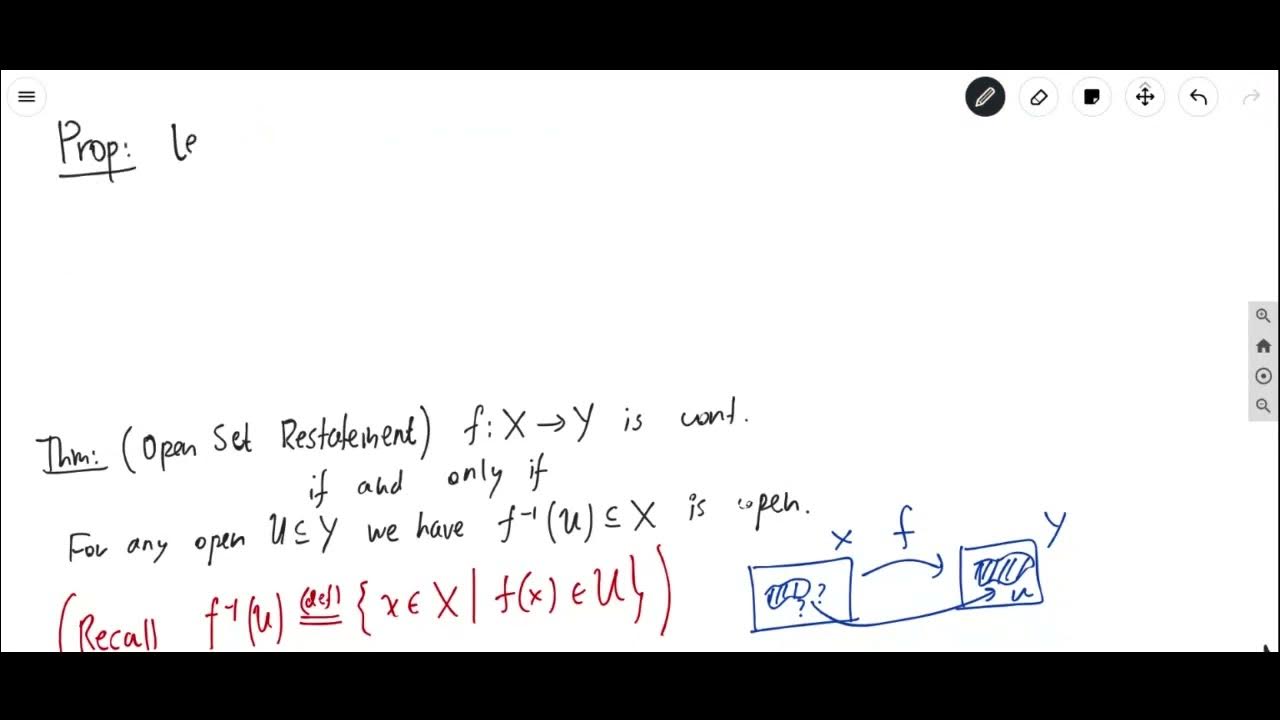 Prop: le
Thm: (Open Set Restatement) f: X → Y is cont.
if and only if
For any open U ⊆ Y we have f⁻¹(U) ⊆ X is open.
(Recall f⁻¹(U) (def)= {x ∈ X | f(x) ∈ U})
X f Y
? ? U